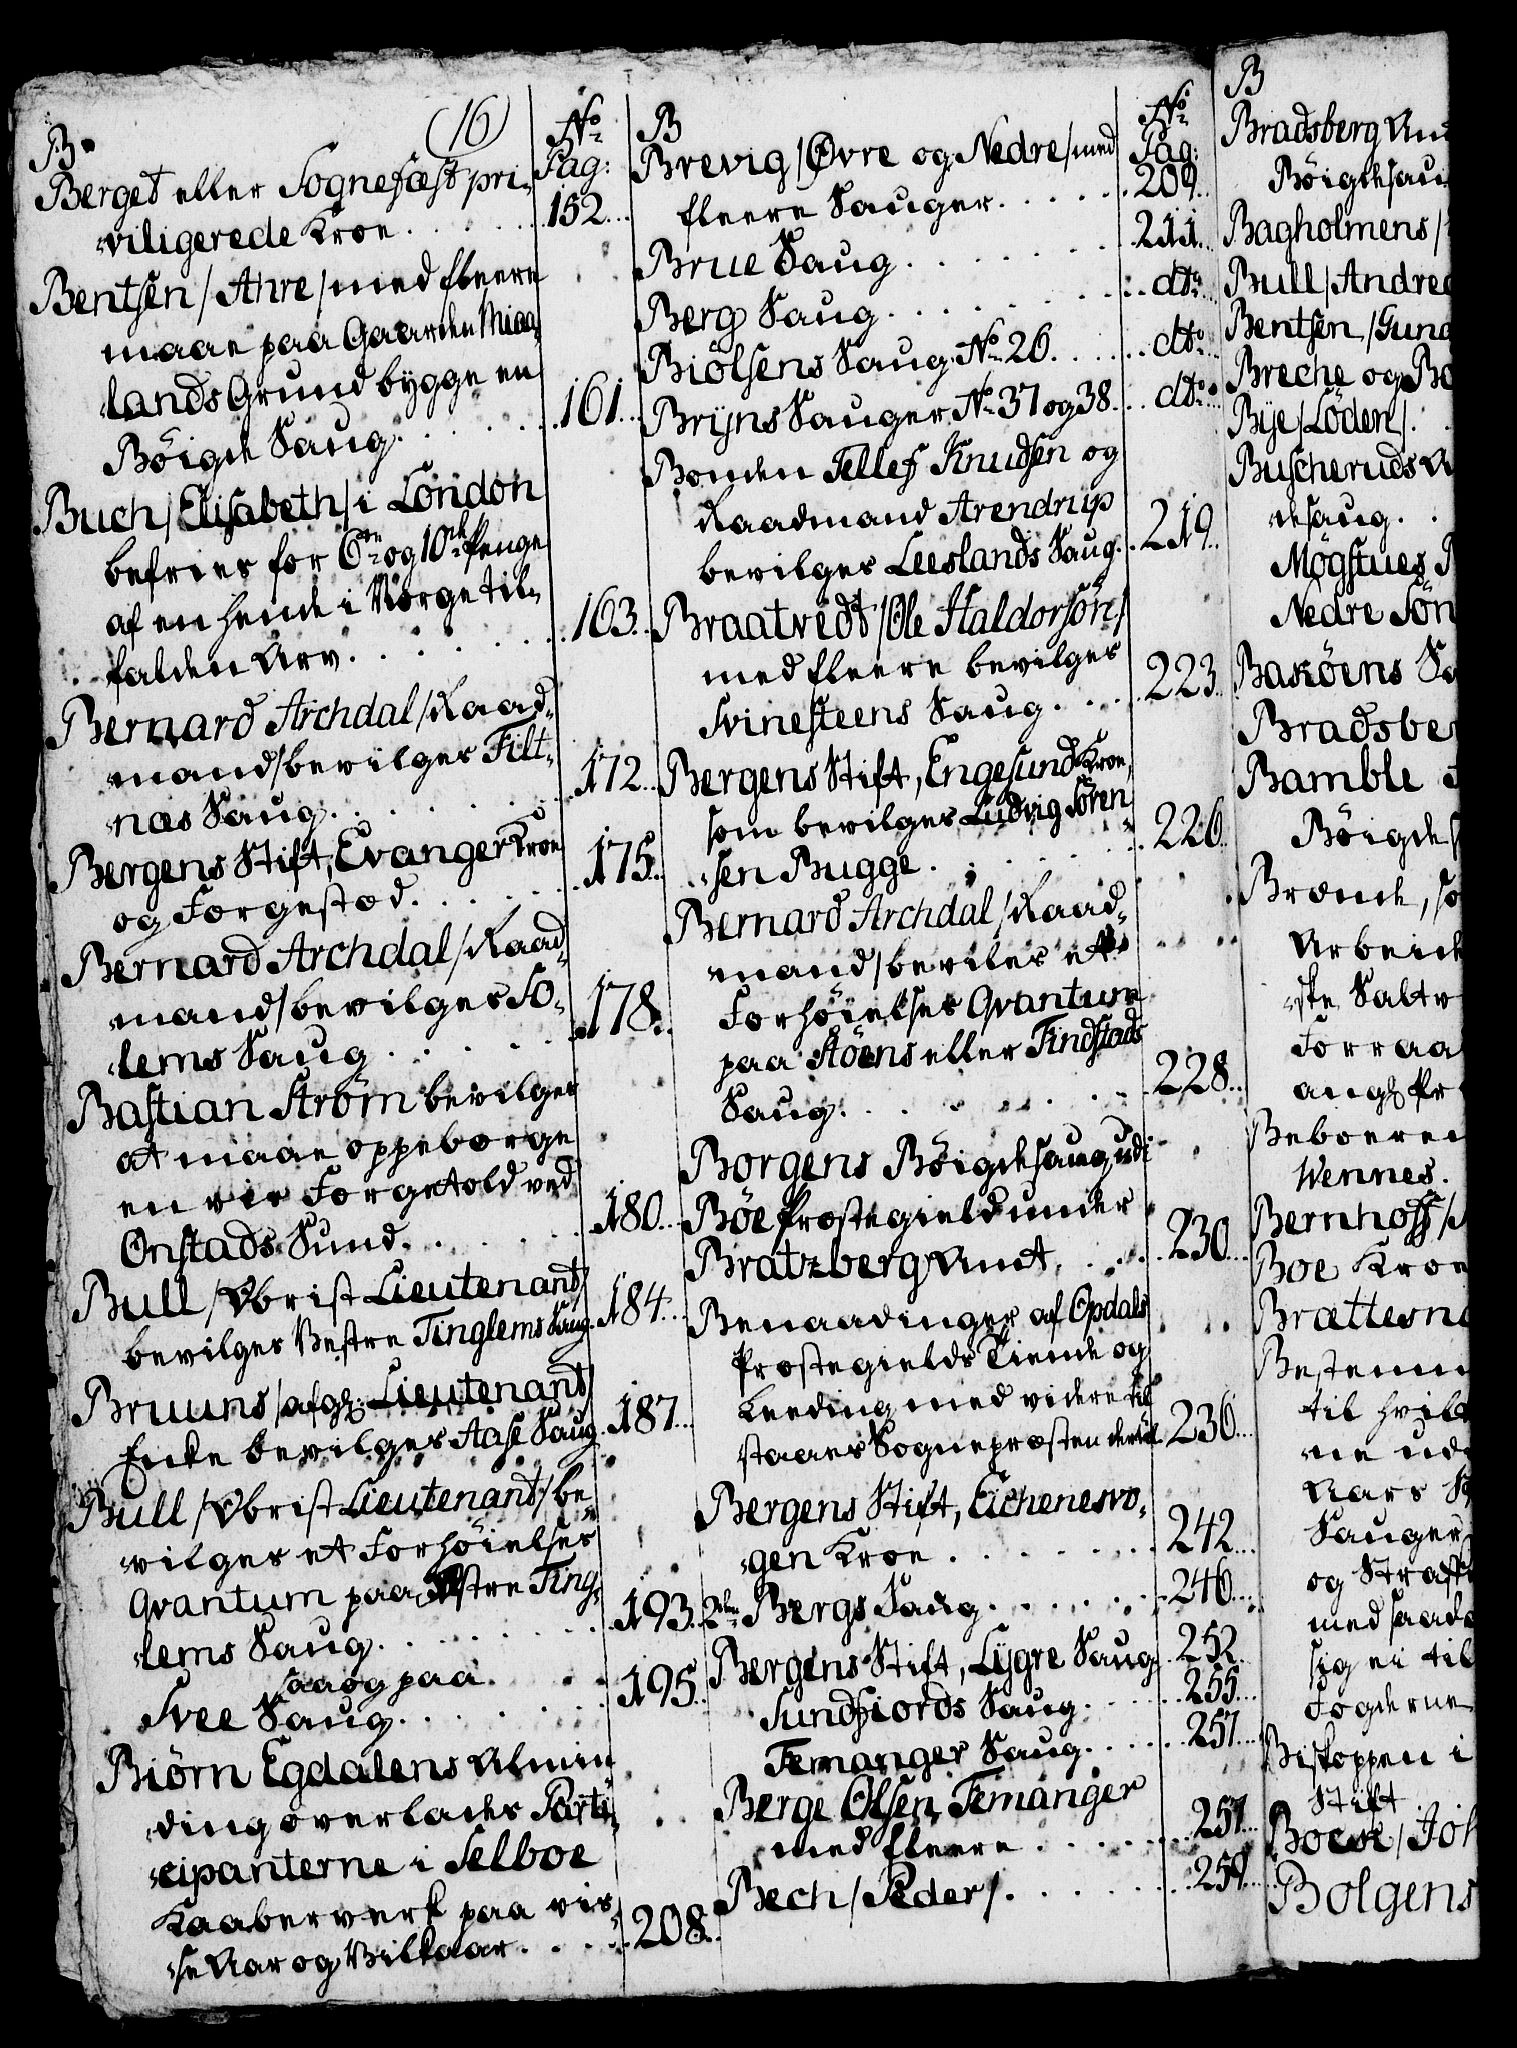 (16)
B.
No
Pag:
Berget eller Sognefæst pri-
viligerede Kroe . . . . . 152.
Bentsen / Anre / med fleere
maae paa Gaarden Miaa-
lands Grund bygge en
Böigde Saug. . . . . 161.
Buch / Elisabeth / i London
befries for 6te og 10de Penge
af en hende i Norge til-
falden Arv. . . . . 163.
Bernard Archdal / Raad-
mand / bevilges Filt-
næs Saug. . . . . 172.
Bergens Stift, Evanger Kroe
og Færgestæd. . . . . 175.
Bernard Archdal / Raad-
mand / bevilges So-
lems Saug . . . . . 178.
Bastian Strøm bevilges
at maae oppebærge
en vis Færgetold ved
Onstads Sund. . . . . 180.
Bull / Obrist Lieutenant /
bevilges Vestre Tinglems Saug. 184.
Bruuns / afg: Lieutenant /
Enke bevilges Aase Saug. 187.
Bull / Obrist Lieutenant / be-
vilges et Forhöielses
Qvantum paa Østre Ting-
lems Saug. . . . . 193.
saaog paa . . . .
Svee Saug. . . . . 195.
Biørn Egdalens Almin
ding overlades Parti-
cipanterne i Selboe
Kaaberverk paa vis-
se Aar og Vilkaar. . . . . 208.
B
No
Pag:
Brevig / Øvre og Nedre / med
fleere Sauger. . . . . 209.
Brue Saug . . . . . 211.
Berg Saug. . . . . dto
Biölsens Saug No 26. . . . . dto
Brÿns Sauger No 37 og 38. . . dto
Bonden Tellef Knudsen og
Raadmand Arendrup
bevilges Leeslands Saug. . 219.
Braatvedt / Ole Haldorsön /
med fleere bevilges
Svinesteens Saug. . . . . 223.
Bergens Stift, Engesund Kroe,
som bevilges Ludvig Sören
sen Bugge . . . . . 226.
Bernard Archdal / Raad-
mand / beviles et
Forhöielses Qvantum
paa Stöens eller Findstads
Saug. . . . . 228.
Borgens Böigdesaug udi
Böe Præstegield under
Bratzberg Amt. . . . . 230.
Benaadinger af Opdals
Præstegields Tiende og
Leeding med videre til
staaes Sognepræsten dertil. 236.
Bergens Stift, Eichenesvo-
gen Kroe . . . . . 242.
Bergs Saug. . . . . 246.
Bergens Stift, Lÿgre Saug. 252.
Sundfiords Saug. . . . . 255.
Femanger Saug. . . . . 257.
Berge Olsen Femanger
med fleere . . . . . 257.
Bech / Peder / . . . . . 259.
B
Bradsberg Am
Böigdesau
Bagholmens /
Bull / Andrea
Bentsen / Gund
Breche og Bo
Bÿe / Löden / .
Buscheruds A
desaug. .
Møgstues
Nedre Sön
Bakøens Sa
Bradsbe
Bamble
Böigdes
Brænde, so
Arbeide
ske Saltv
Forraa
Beboeren
Wennes.
Bernhoff /
Boe Kroe
Brættesn
Bestemm
til hvil
ne ud
Aars S
Sauger
og Straff
med saad
sig ei til
Fogderne
Biskoppen i
Stift
Boeck / Joh
Bolgens